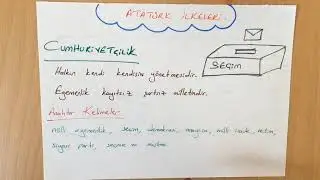 ATATÜRK İLKELERİ
CUMHURİYETÇİLİK
SEÇİM
Halkın kendi kendisini yönetmesidir.
Egemenlik kayıtsız şartsız milletindir.
Anahtar Kelimeler
milli egemenlik, seçim, demokrasi, meclis, milli irade,
siyasi parti, seçme ve seçilme